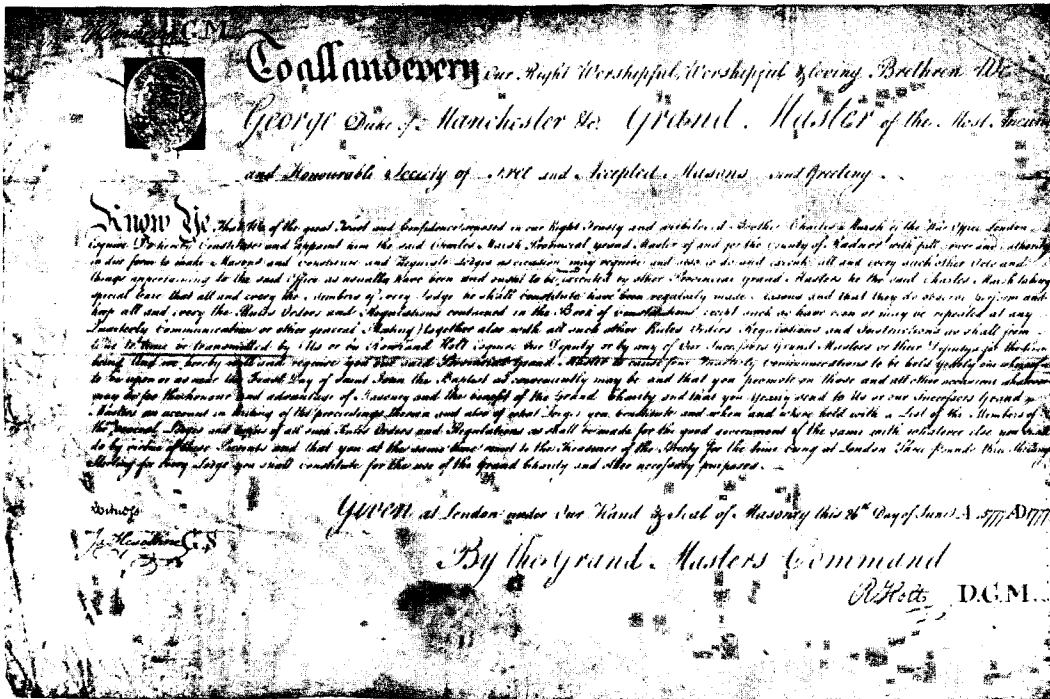 G.M.
To all and every Our Right Worshipful, Worshipful & loving Brethren We
George Duke of Manchester &c. Grand Master of the Most
and Honourable Society of Free and Accepted Masons send Greeting
Know Ye That We of the great Trust and Confidence reposed in our Right Trusty and Brother Charles Marsh of the War Office London
Esquire Do hereby Constitute and appoint him the said Charles Marsh Provincial Grand Master of and for the County of Radnor with full power and authority
in due form to make Masons and constitute and Regulate Lodges as occasion may require and also to do and execute all and every such other Acts and
things appertaining to the said Office as usually have been and ought to be executed by other Provincial Grand Masters he the said Charles Marsh taking
special Care that all and every the Members of every Lodge he shall constitute have been regularly made Masons and that they do observe perform and
keep all and every the Rules Orders and Regulations contained in the Book of Constitutions except such as have been or may be repealed at any
Quarterly Communication or other general Meeting together also with all such other Rules Orders Regulations and Instructions as shall from
time to time be transmitted by Us or by Rowland Holt Esquire Our Deputy or by any of Our Successors Grand Masters or their Deputys for the time
being And we hereby will and require you our said Provincial Grand Master to cause four Quarterly Communications to be held yearly one whereof
to be upon or as near the Feast Day of Saint John the Baptist as conveniently may be and that you promote on those and all other occasions whatever
may be for the honour and advantage of Masonry and the benefit of the Grand Charity and that you yearly send to Us or our Successors Grand
Masters an account in Writing of the proceedings therein and also of what Lodges you constitute and when and where held with a List of the Members of
the several Lodges and copies of all such Rules Orders and Regulations as shall be made for the good government of the same with whatever else you shall
do by virtue of these Presents and that you at the same time remit to the Treasurer of the Society for the time being at London Three pounds three Shillings
Sterling for every Lodge you shall constitute for the use of the Grand Charity and other necessary purposes
Given at London under Our Hand & Seal of Masonry this 26th Day of June A 5777 AD 1777
Witness
By the Grand Masters Command
Js Heseltine G.S
R Holt D.G.M.